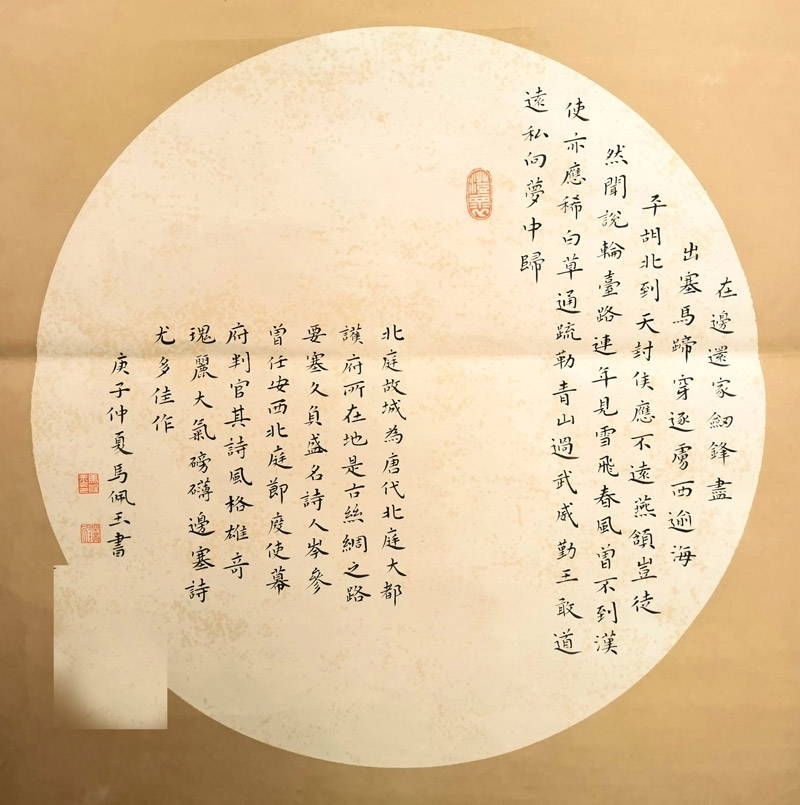 在邊還家劒鋒盡
出塞馬蹄穿逐虜西逾海
平胡北到天封侯應不遠燕頷豈徒
然聞說輪臺路連年見雪飛春風曾不到漢
使亦應稀白草通疏勒青山過武威勤王敢道
遠私向夢中歸
北庭故城為唐代北庭大都
護府所在地是古絲綢之路
要塞久負盛名詩人岑參
曾任安西北庭節度使幕
府判官其詩風格雄奇
瑰麗大氣磅礴邊塞詩
尤多佳作
庚子仲夏馬佩玉書